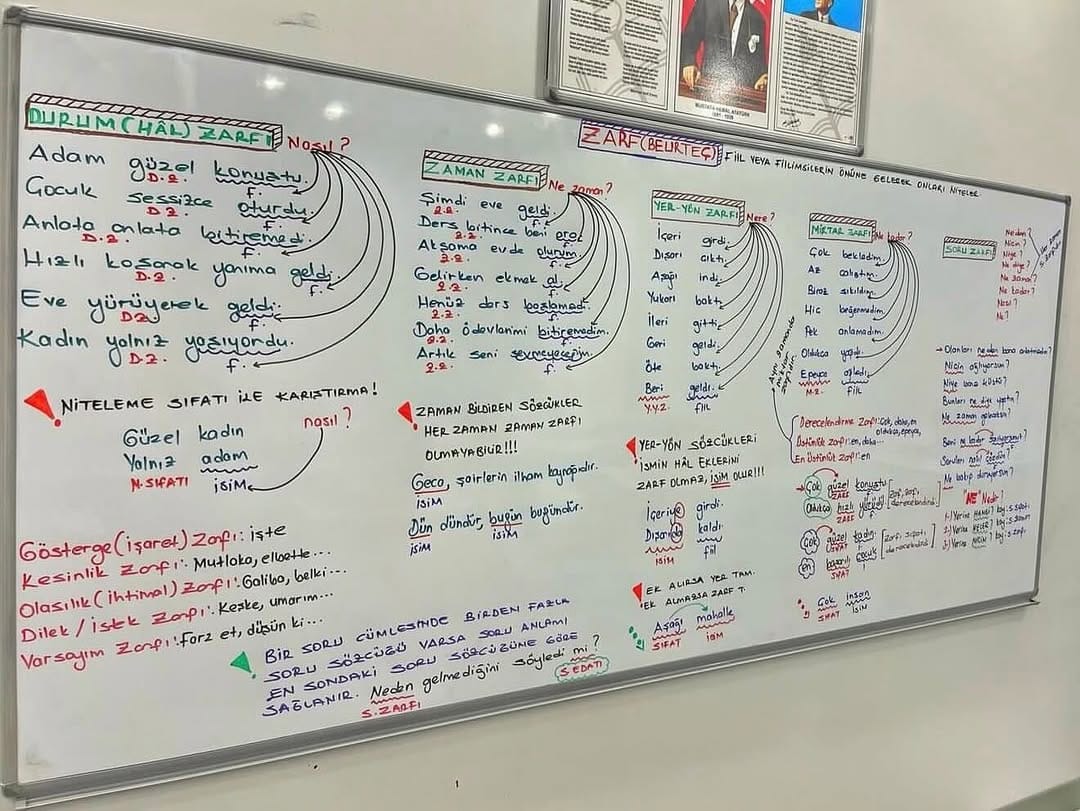 MUSTAFA KEMAL ATATÜRK
1881 - 1938
ZARF(BELİRTEÇ) FİİL VEYA FİİLİMSİLERİN ÖNÜNE GELEREK ONLARI NİTELER.
DURUM(HÂL) ZARFI Nasıl?
Adam güzel konuştu.
D.Z. f.
Çocuk sessizce oturdu.
D.Z. f.
Anlata anlata bitiremedi.
D.Z. f.
Hızlı koşarak yanıma geldi.
D.Z. f.
Eve yürüyerek geldi.
D.Z. f.
Kadın yalnız yaşıyordu.
D.Z. f.
! NİTELEME SIFATI İLE KARIŞTIRMA!
nasıl?
Güzel kadın
Yalnız adam
N.SIFATI İSİM
Gösterge(işaret) Zarfı: İşte
Kesinlik Zarfı: Mutlaka, elbette...
Olasılık(ihtimal) Zarfı: Galiba, belki...
Dilek/İstek Zarfı: Keşke, umarım...
Varsayım Zarfı: Farz et, düşün ki...
! BİR SORU CÜMLESİNDE BİRDEN FAZLA
SORU SÖZCÜĞÜ VARSA SORU ANLAMI
EN SONDAKİ SORU SÖZCÜĞÜNE GÖRE
SAĞLANIR. Neden gelmediğini söyledi mi?
S.ZARFI S.EDATI
ZAMAN ZARFI Ne zaman?
Şimdi eve geldi.
Z.Z. f.
Ders bitince beni ara.
Z.Z. f.
Akşama evde olurum.
Z.Z. f.
Gelirken ekmek al.
Z.Z. f.
Henüz ders başlamadı.
Z.Z. f.
Daha ödevlerimi bitiremedim.
Z.Z. f.
Artık seni sevmeyeceğim.
Z.Z. f.
! ZAMAN BİLDİREN SÖZCÜKLER
HER ZAMAN ZAMAN ZARFI
OLMAYABİLİR!!!
Gece, şairlerin ilham kaynağıdır.
İSİM
Dün dündür, bugün bugündür.
İSİM İSİM
YER-YÖN ZARFI Nere?
İçeri girdi.
Dışarı çıktı.
Aşağı indi.
Yukarı baktı.
İleri gitti.
Geri geldi.
Öte baktı.
Beri geldi.
Y.Y.Z. fiil
! YER-YÖN SÖZCÜKLERİ
İSMİN HÂL EKLERİNİ
ZARF OLMAZ, İSİM OLUR!!!
İçeriye girdi.
Dışarıda kaldı.
İSİM fiil
! EK ALIRSA YER TAM.
EK ALMAZSA ZARF T.
Aşağı mahalle
SIFAT İSİM
MİKTAR ZARFI Ne kadar?
Çok bekledim.
Az çalıştım.
Biraz sıkıldım.
Hiç beğenmedim.
Pek anlamadım.
Oldukça yaptı.
Epeyce ağladı.
M.Z. fiil
Aynı zamanda miktar zarfıdır.
Derecelendirme Zarfı: Çok, daha, en
oldukça, epeyce,
Üstünlük Zarfı: en, daha...
En Üstünlük Zarfı: en
Çok güzel konuştu
ZARF f.
Oldukça hızlı yürüdü
ZARF f.
[Zarf, zarfı derecelendirdi]
Çok güzel kadın
SIFAT
en başarılı çocuk
SIFAT
[Zarf sıfatı derecelendirdi]
Çok insan
SIFAT İSİM
SORU ZARFI
Neden?
Niçin?
Niye?
Ne diye?
Ne zaman?
Ne kadar?
Nasıl?
Ne?
Her zaman S.Zarfıdır
Olanları neden bana anlatmadın?
Niçin ağlıyorsun?
Niye bana küstü?
Bunları ne diye yaptın?
Ne zaman geleceksin?
Beni ne kadar seviyorsun?
Soruları nasıl çözdün?
Ne bakıp duruyorsun?
"NE" Nedir?
1-) Yerine HANGİ? koy: S.Sıfatı
2-) Yerine NELER? koy: S.Zamiri
3-) Yerine NİÇİN? koy: S.Zarfı